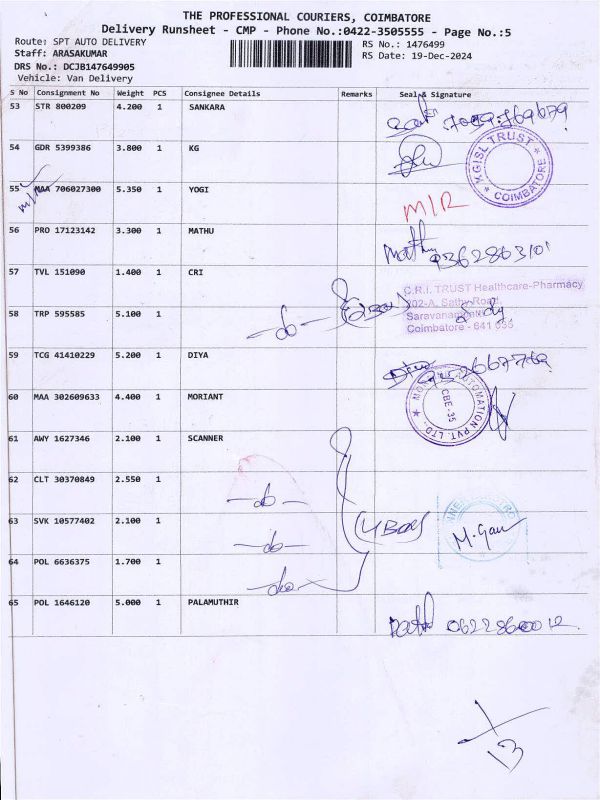 THE PROFESSIONAL COURIERS, COIMBATORE
Delivery Runsheet - CMP - Phone No.:0422-3505555 - Page No.:5
Route: SPT AUTO DELIVERY
Staff: ARASAKUMAR
DRS No.: DCJB147649905
Vehicle: Van Delivery
RS No.: 1476499
RS Date: 19-Dec-2024
S No Consignment No Weight PCS Consignee Details Remarks Seal & Signature
53 STR 800209 4.200 1 SANKARA
54 GDR 5399386 3.800 1 KG
KGISL TRUST COIMBATORE
55 MAA 706027300 5.350 1 YOGI M/R
56 PRO 17123142 3.300 1 MATHU
57 TVL 151090 1.400 1 CRI
C.R.I. TRUST Healthcare-Pharmacy
202-A, Sathy Road,
Coimbatore - 641 035
58 TRP 595585 5.100 1 -do-
59 TCG 41410229 5.200 1 DIYA
60 MAA 302609633 4.400 1 MORIANT
CBE-35
61 AWY 1627346 2.100 1 SCANNER
62 CLT 30370849 2.550 1 -do-
63 SVK 10577402 2.100 1 -do- (4 Box) M. Gan
64 POL 6636375 1.700 1 -do-
65 POL 1646120 5.000 1 PALAMUTHIR
13